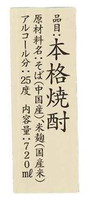 品目:本格焼酎
原材料名:そば(中国産)、米麹(国産米)
アルコール分:25度 内容量:720ml